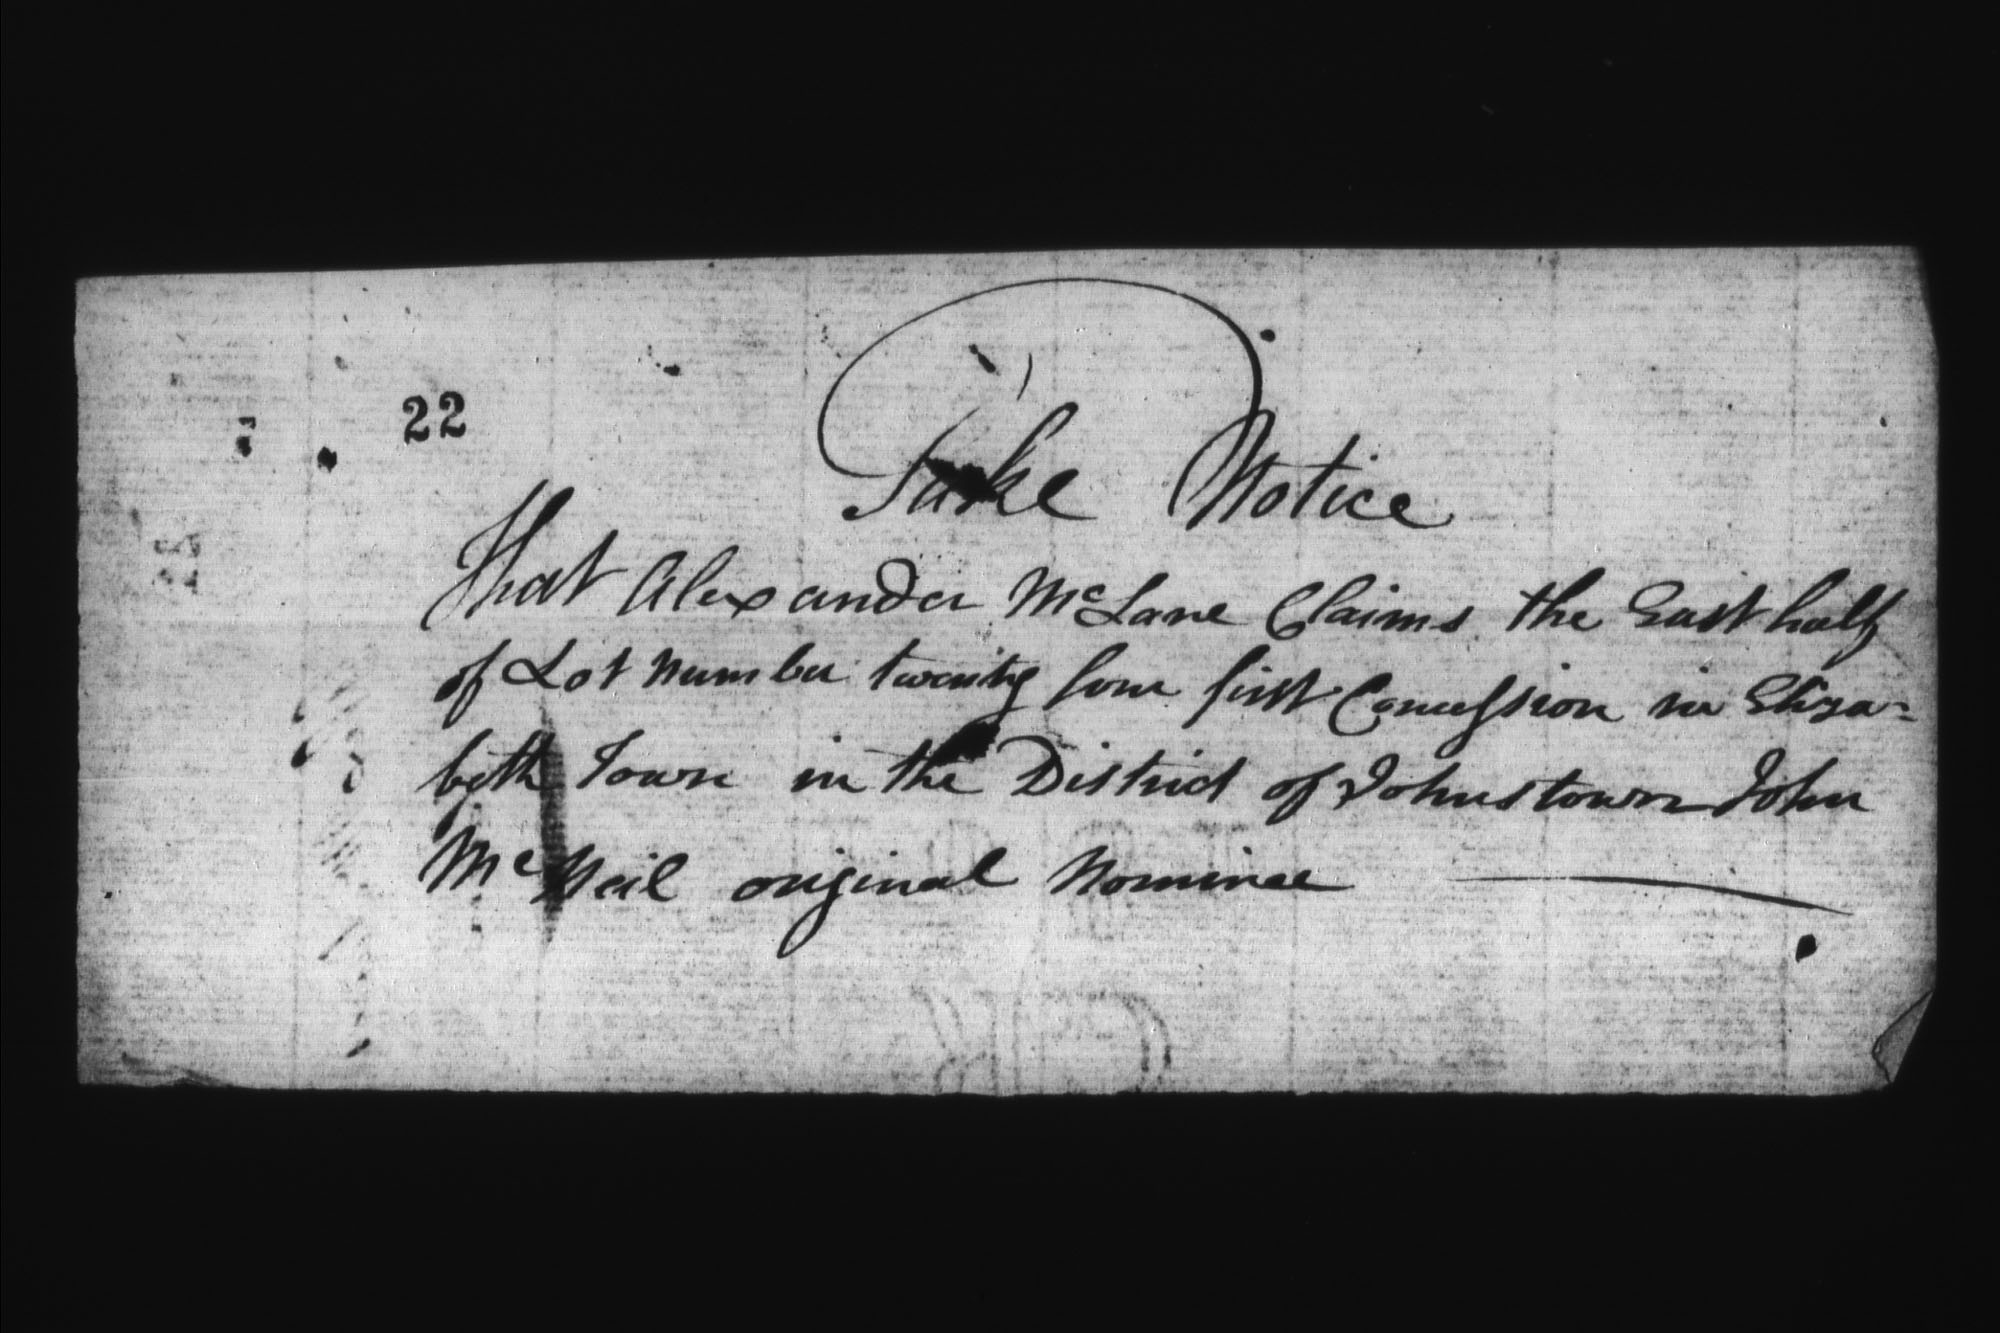 22
Take Notice
That Alexander McLane Claims the East half
of Lot Number twenty four first Concession in Eliza=
beth Town in the District of Johnstown John
Mc Neil original Nominee